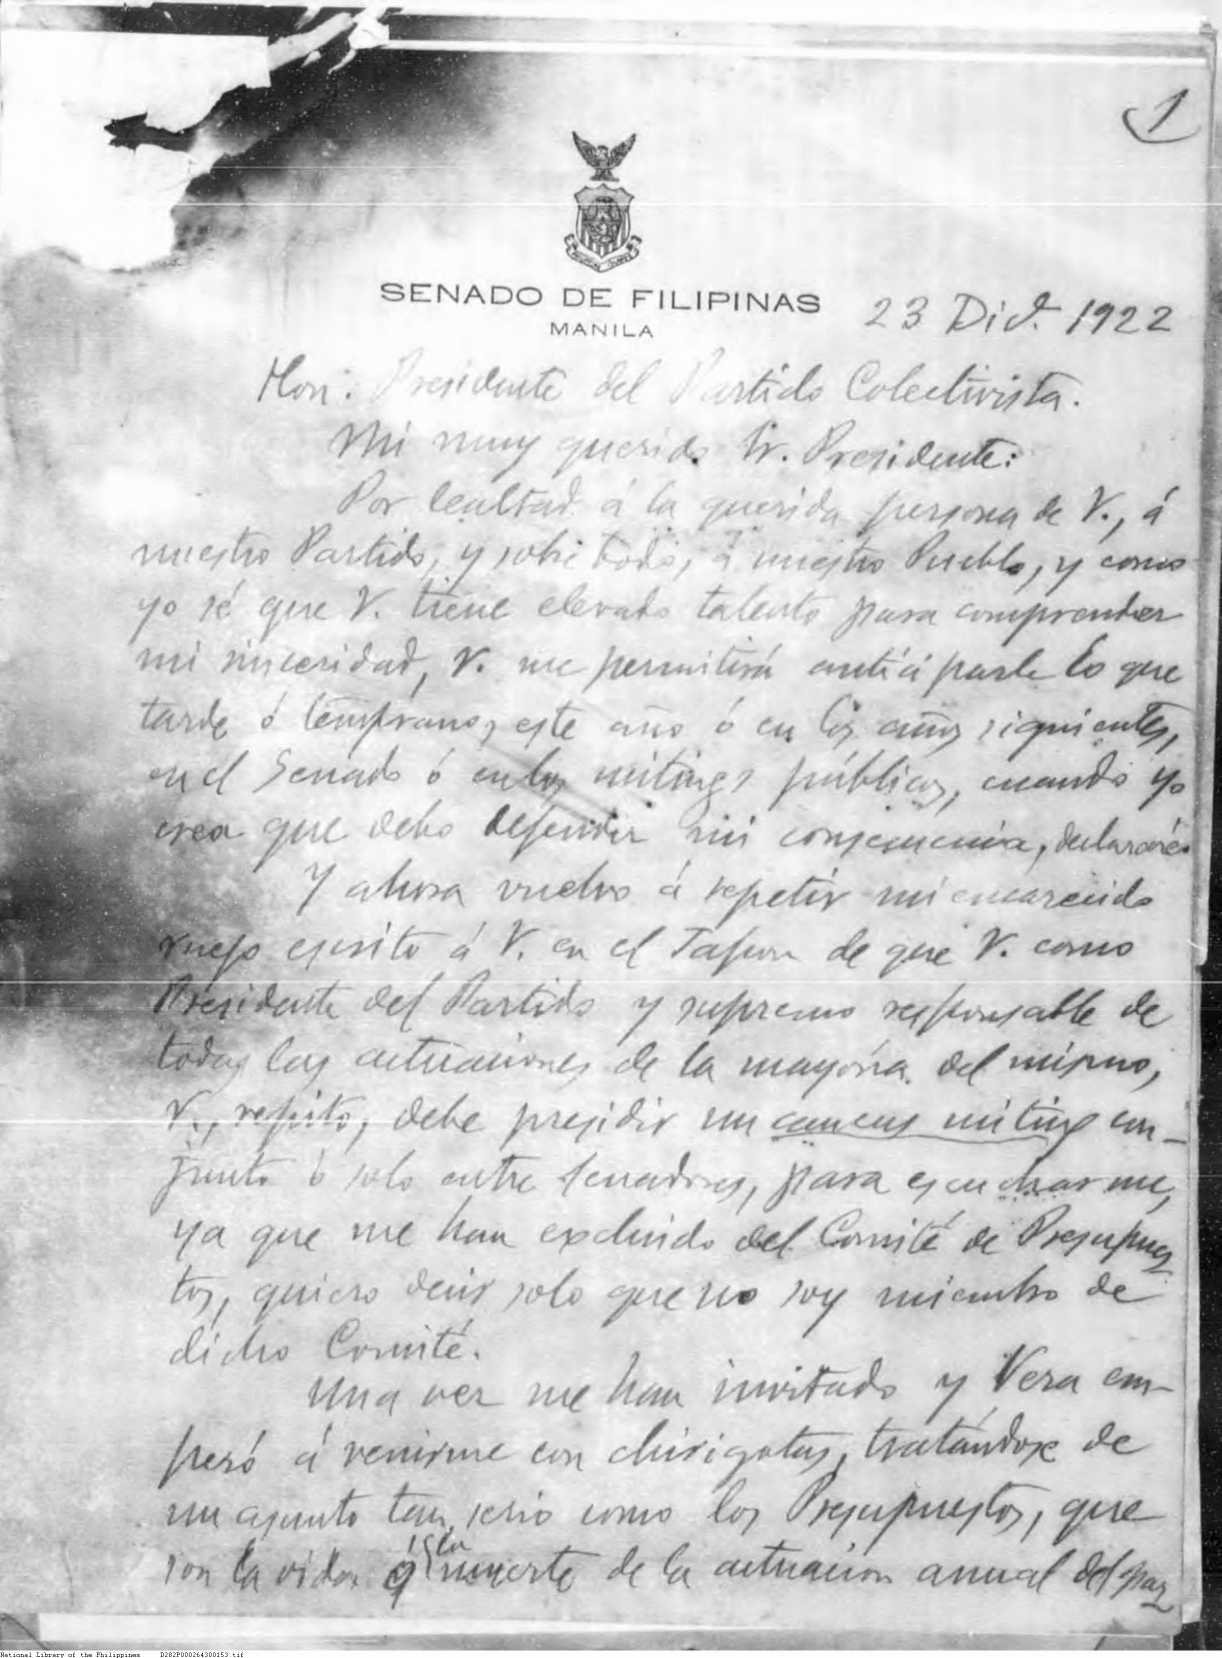 1
SENADO DE FILIPINAS
MANILA
23 Dic. 1922
Hon. Presidente del Partido Colectivista.
Mi muy querido Sr. Presidente:
Por lealtad á la querida persona de V., á
nuestro Partido, y sobre todo, á nuestro Pueblo, y como
yo sé que V. tiene elevado talento para comprender
mi sinceridad, V. me permitirá anticiparle lo que
tarde ó temprano, este año ó en los años siguientes,
en el Senado ó en los mitings públicos, cuando yo
crea que debo defender mi consecuencia, declararé.
Y ahora vuelvo á repetir mi encarecido
ruego escrito á V. en el de que V. como
Presidente del Partido y supremo responsable de
todas las actuaciones de la mayoría del mismo,
V., repito, debe presidir un caucus miting con-
junto ó solo entre Senadores, para escucharme,
ya que me han excluido del Comité de Presupues-
tos, quiero decir solo que no soy miembro de
dicho Comité.
Una vez me han invitado y Vera em-
pezó á venirme con chirigotas, tratándose de
un asunto tan serio como los Presupuestos, que
son la vida ó la muerte de la actuacion anual del par
National Library of the Philippines D282P000264300153.tif